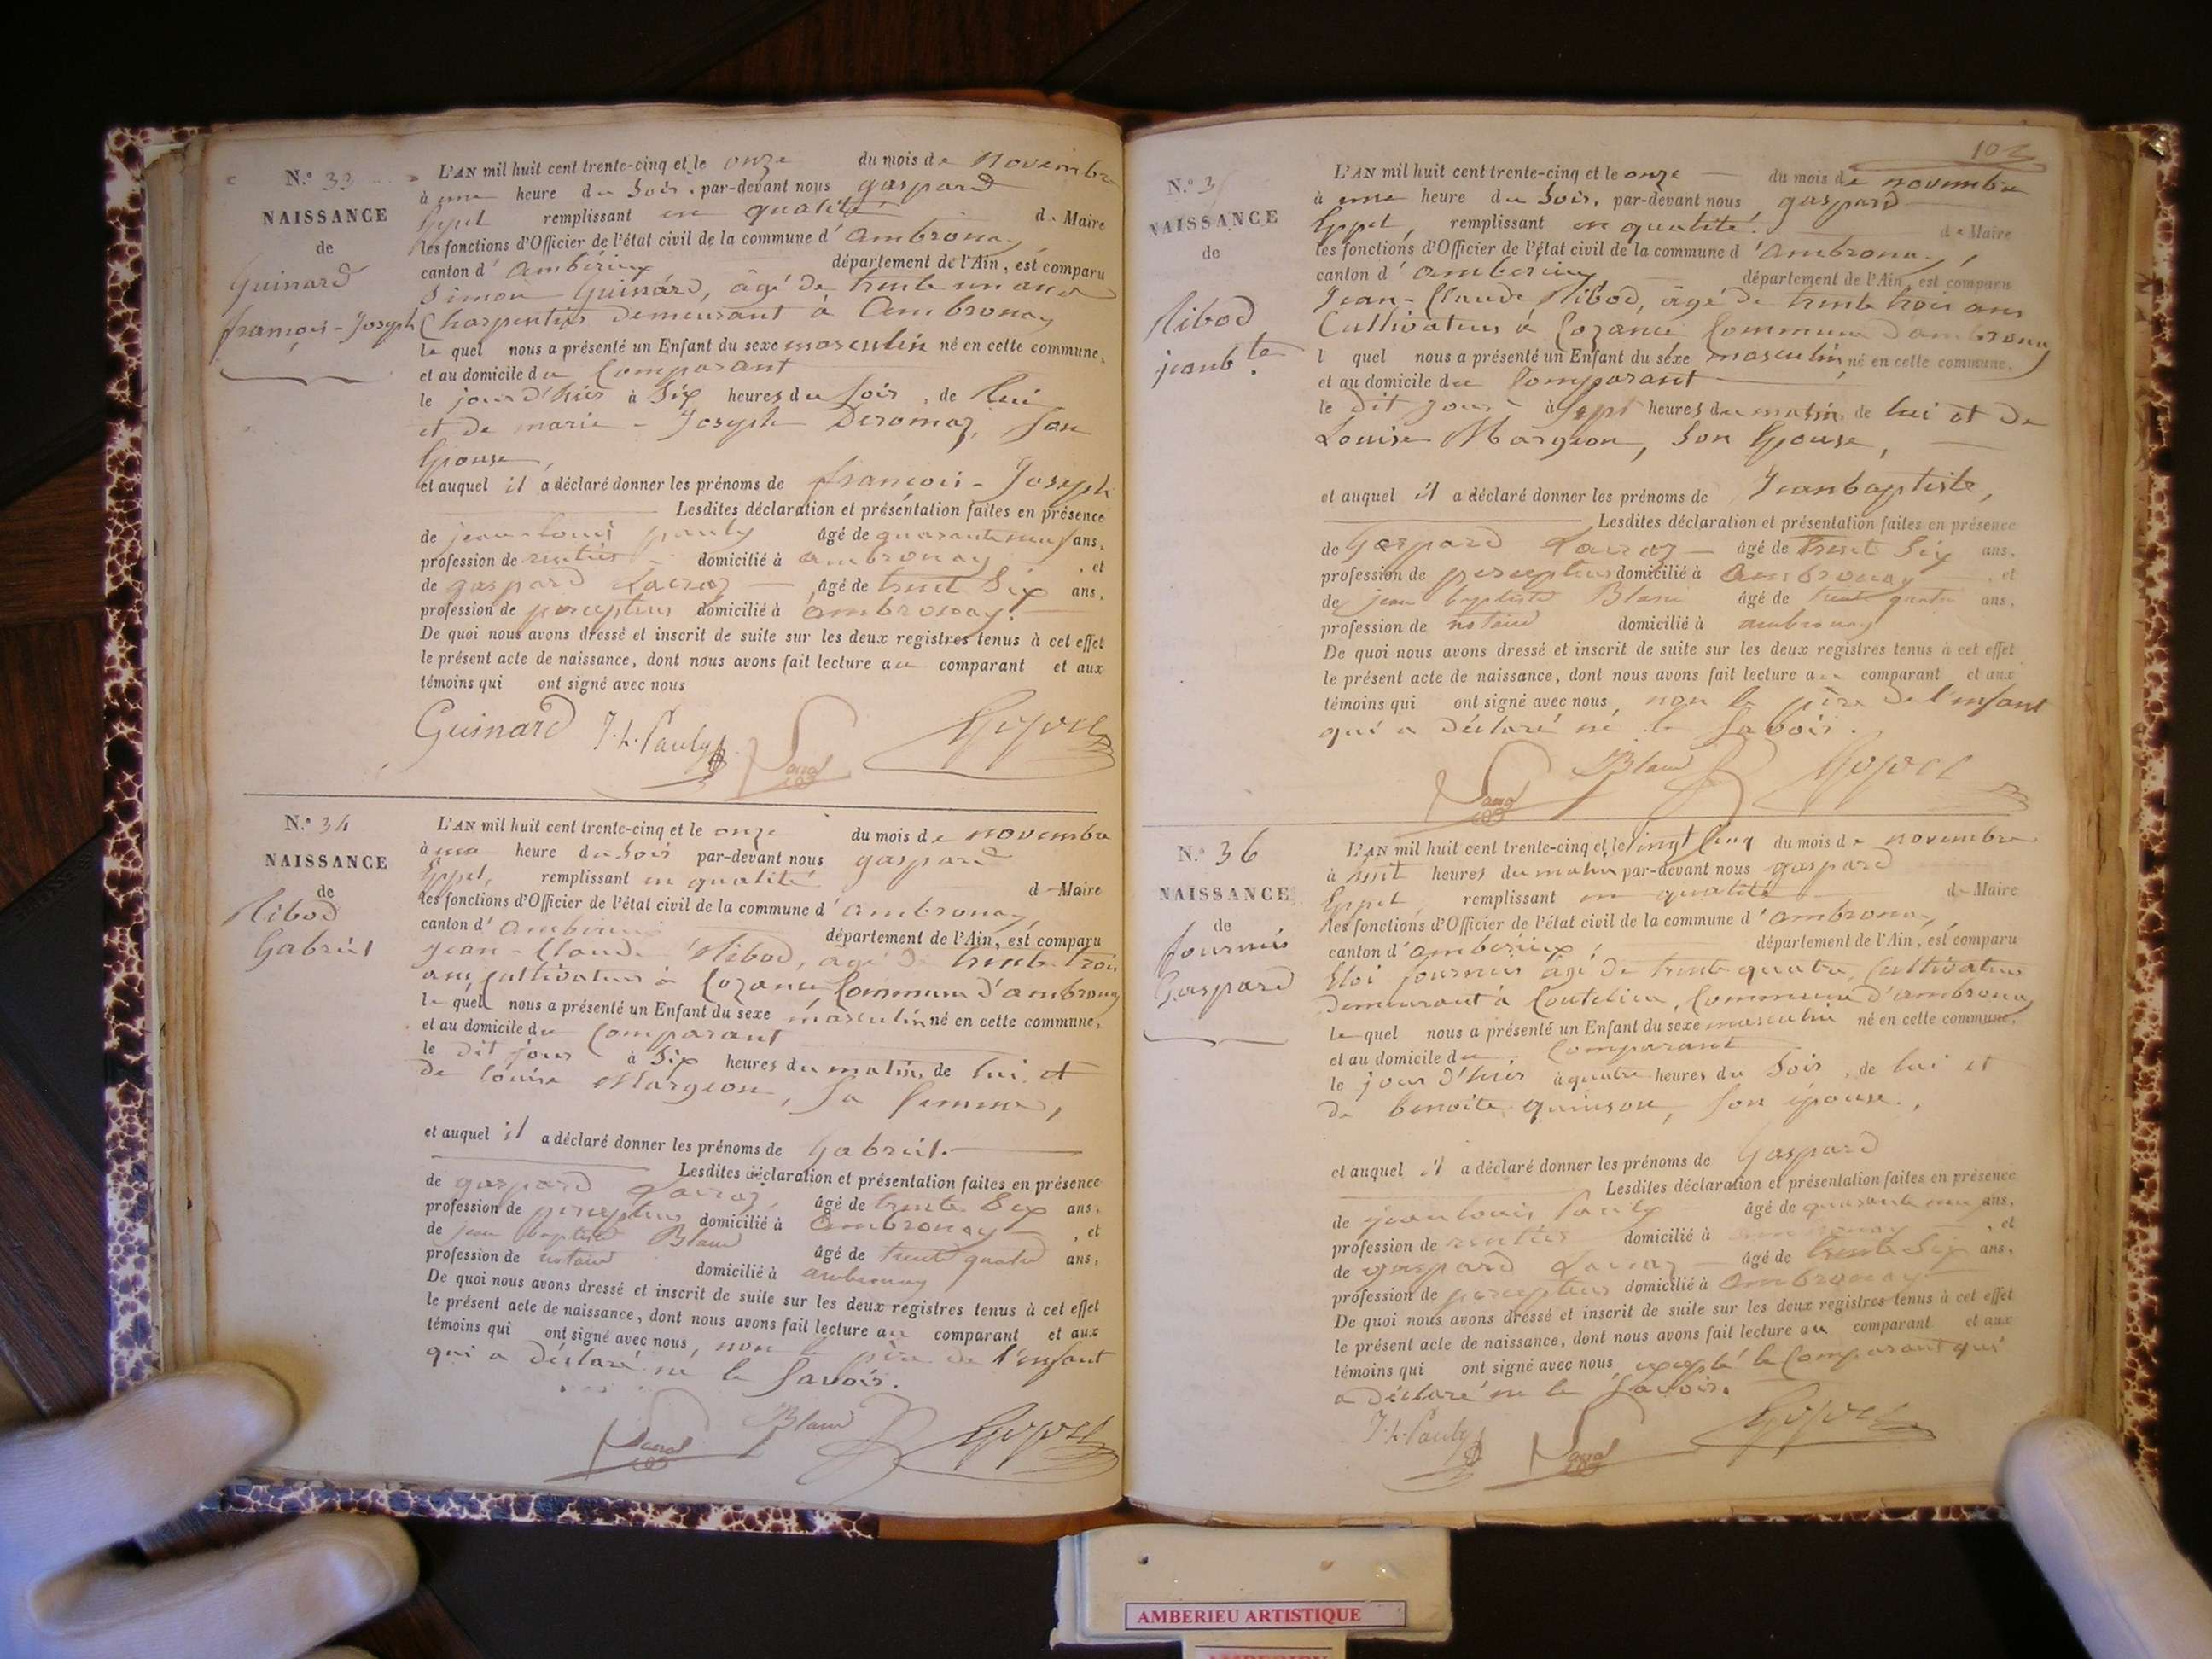 N.º 33
NAISSANCE
de
Guinard
françois-Joseph
L'AN mil huit cent trente-cinq et le onze du mois de novembre
à une heure du soir, par-devant nous gaspard
Eppel remplissant en qualité de Maire
les fonctions d'Officier de l'état civil de la commune d'ambronay
canton d'ambérieux département de l'Ain, est comparu
Simon Guinard, âgé de trente un ans
Charpentier demeurant à Ambronay
lequel nous a présenté un Enfant du sexe masculin né en cette commune,
et au domicile du Comparant
le jour d'hier à Six heures du soir, de lui
et de marie-Joseph Deromaz, son
épouse,
et auquel il a déclaré donner les prénoms de françois-Joseph
Lesdites déclaration et présentation faites en présence
de jean-louis pauly âgé de quarante neuf ans,
profession de rentier domicilié à ambronay, et
de gaspard âgé de trent Six ans,
profession de percepteur domicilié à ambronay.
De quoi nous avons dressé et inscrit de suite sur les deux registres tenus à cet effet
le présent acte de naissance, dont nous avons fait lecture au comparant et aux
témoins qui ont signé avec nous
Guinard J. L. Pauly
N.º 34
NAISSANCE
de
Ribod
Gabriel
L'AN mil huit cent trente-cinq et le onze du mois de novembre
à une heure du soir par-devant nous gaspard
Eppel, remplissant en qualité de Maire
les fonctions d'Officier de l'état civil de la commune d'ambronay,
canton d'ambérieux département de l'Ain, est comparu
jean-Claude Ribod, âgé de trente trois
ans, Cultivateur à Cozance Commune d'ambronay
lequel nous a présenté un Enfant du sexe masculin né en cette commune,
et au domicile du Comparant
le dit jour à Six heures du matin, de lui et
de louise Margeon, sa femme,
et auquel il a déclaré donner les prénoms de Gabriel.
Lesdites déclaration et présentation faites en présence
de gaspard âgé de trente Six ans,
profession de percepteur domicilié à ambronay, et
de jean baptiste Blanc âgé de trente quatre ans,
profession de notaire domicilié à ambronay
De quoi nous avons dressé et inscrit de suite sur les deux registres tenus à cet effet
le présent acte de naissance, dont nous avons fait lecture au comparant et aux
témoins qui ont signé avec nous, non le père de l'enfant
qui a déclaré ne le savoir.
Blanc
103
N.º 3
NAISSANCE
de
Ribod
jean bte.
L'AN mil huit cent trente-cinq et le onze du mois de novembre
à une heure du soir, par-devant nous gaspard
Eppel, remplissant en qualité de Maire
les fonctions d'Officier de l'état civil de la commune d'ambronay,
canton d'ambérieux département de l'Ain, est comparu
Jean-Claude Ribod, âgé de trente trois ans
Cultivateur à Cozance Commune d'ambronay
lquel nous a présenté un Enfant du sexe masculin né en cette commune,
et au domicile du Comparant
le dit jour à Sept heures du matin, de lui et de
Louise Margeon, son épouse,
et auquel il a déclaré donner les prénoms de Jean baptiste,
Lesdites déclaration et présentation faites en présence
de Gaspard âgé de trent Six ans,
profession de percepteur domicilié à Ambronay, et
de jean baptiste Blanc âgé de trente quatre ans,
profession de notaire domicilié à ambronay
De quoi nous avons dressé et inscrit de suite sur les deux registres tenus à cet effet
le présent acte de naissance, dont nous avons fait lecture au comparant et aux
témoins qui ont signé avec nous, non le père de l'enfant
qui a déclaré ne le savoir.
Blanc
N.º 36
NAISSANCE
de
fournier
Gaspard
L'AN mil huit cent trente-cinq et le vingt cinq du mois de novembre
à huit heures du matin par-devant nous gaspard
Eppel remplissant en qualité de Maire
les fonctions d'Officier de l'état civil de la commune d'ambronay,
canton d'ambérieux, département de l'Ain, est comparu
Eloi fournier âgé de trente quatre, Cultivateur
demeurant à Coutelieu, Commune d'ambronay
lequel nous a présenté un Enfant du sexe masculin né en cette commune,
et au domicile du Comparant
le jour d'hier à quatre heures du soir, de lui et
de benoite quinson, son épouse,
et auquel il a déclaré donner les prénoms de Gaspard
Lesdites déclaration et présentation faites en présence
de jean louis Pauly âgé de quarante neuf ans,
profession de rentier domicilié à ambronay, et
de gaspard âgé de trente Six ans,
profession de percepteur domicilié à ambronay
De quoi nous avons dressé et inscrit de suite sur les deux registres tenus à cet effet
le présent acte de naissance, dont nous avons fait lecture au comparant et aux
témoins qui ont signé avec nous excepté le Comparant qui
a déclaré ne le savoir.
J. L. Pauly
AMBERIEU ARTISTIQUE